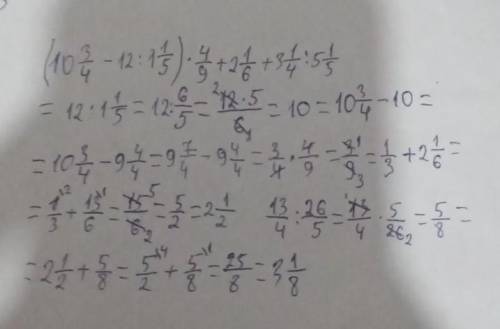 (10 3/4 - 12 : 1 1/5) · 4/9 + 2 1/6 + 3 1/4 : 5 1/5
= 12 : 1 1/5 = 12 : 6/5 = 12·5/6 = 10 = 10 3/4 - 10 =
= 10 3/4 - 9 4/4 = 9 7/4 - 9 4/4 = 3/4 · 4/9 = 3/9 = 1/3 + 2 1/6 =
= 1/3 + 13/6 = 15/6 = 5/2 = 2 1/2 13/4 : 26/5 = 13/4 · 5/26 = 5/8 =
= 2 1/2 + 5/8 = 5/2 + 5/8 = 25/8 = 3 1/8